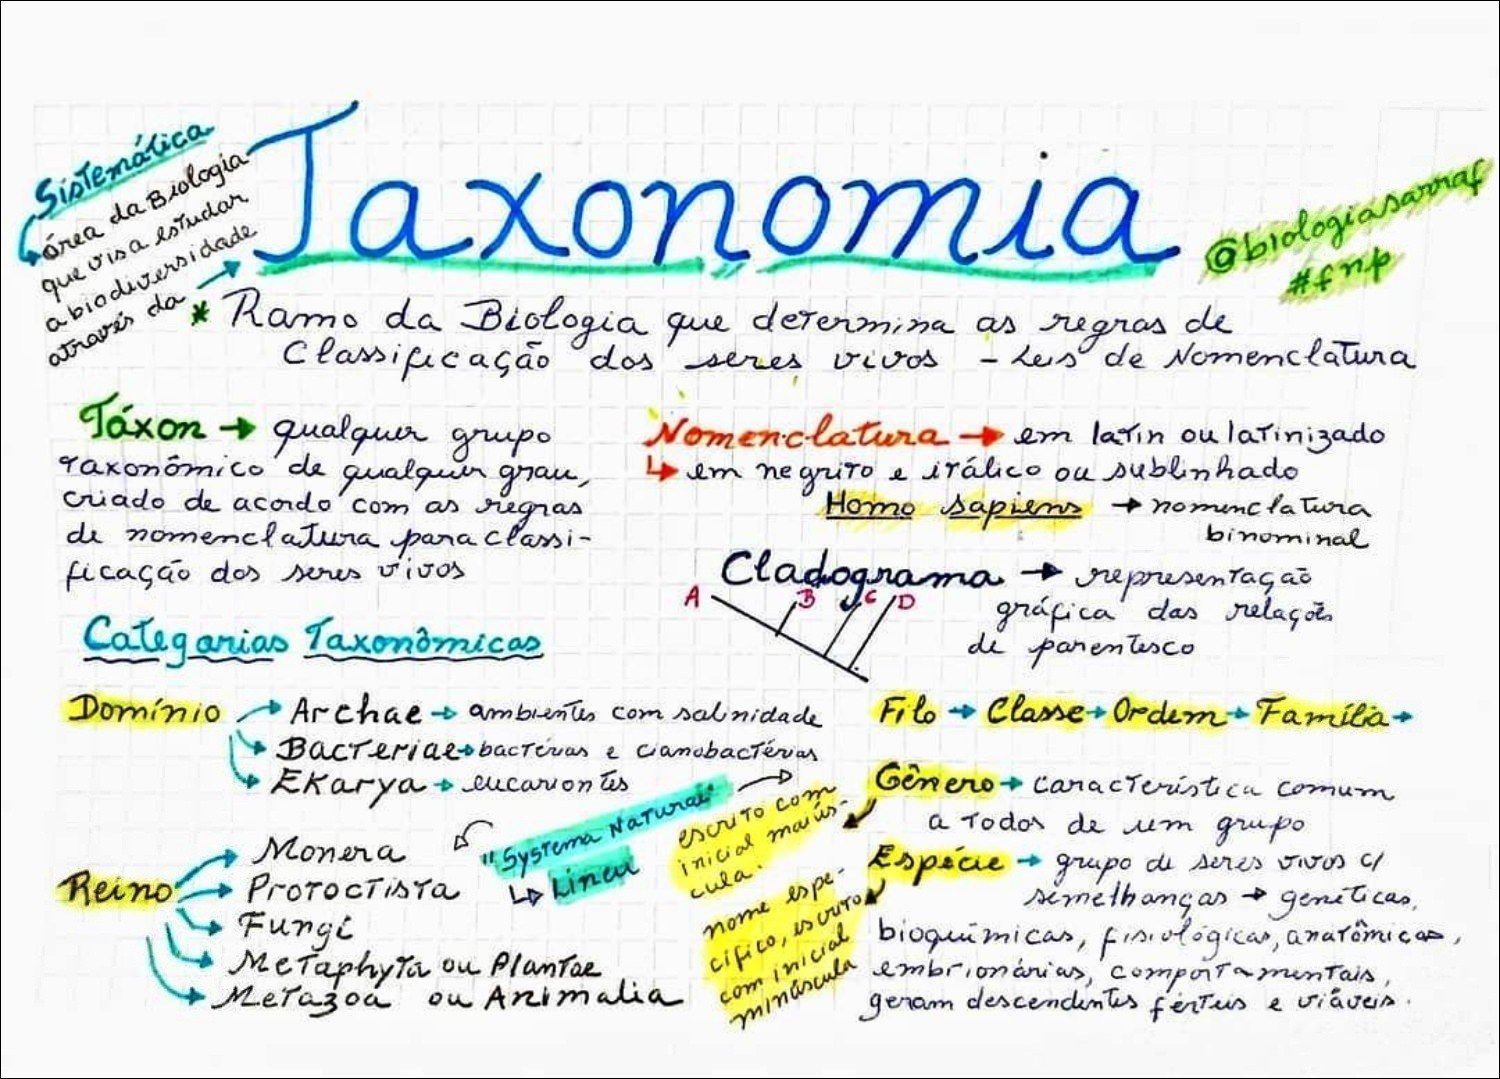 Sistemática
área da Biologia
que visa estudar
a biodiversidade
através da
Taxonomia
@biologiasarraf
#fnp
* Ramo da Biologia que determina as regras de
Classificação dos seres vivos - Leis de Nomenclatura
Táxon → qualquer grupo
taxonômico de qualquer grau,
criado de acordo com as regras
de nomenclatura para classi-
ficação dos seres vivos
Nomenclatura → em latin ou latinizado
↳ em negrito e itálico ou sublinhado
Homo sapiens → nomenclatura
binominal
Cladograma → representação
gráfica das relações
de parentesco
A B C D
Categorias Taxonômicas
Domínio → Archae → ambientes com salinidade
→ Bacteriae → bactérias e cianobactérias
→ Ekarya → eucariontes
"Systema Naturae"
↳ Lineu
Reino → Monera
→ Protoctista
→ Fungi
→ Metaphyta ou Plantae
→ Metazoa ou Animalia
Filo → Classe → Ordem → Família →
Gênero → característica comum
a todos de um grupo
escrito com
inicial maiús-
cula.
Espécie → grupo de seres vivos c/
semelhanças → genéticas,
bioquímicas, fisiológicas, anatômicas,
embrionárias, comportamentais,
geram descendentes férteis e viáveis.
nome espe-
cífico, escrito
com inicial
minúscula